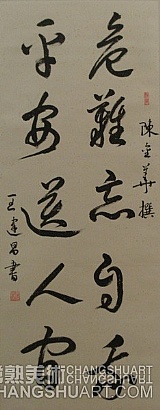 危難忘自
平安送人家
陳金華撰
王建昌書
CHANGSHUART
ART.COM